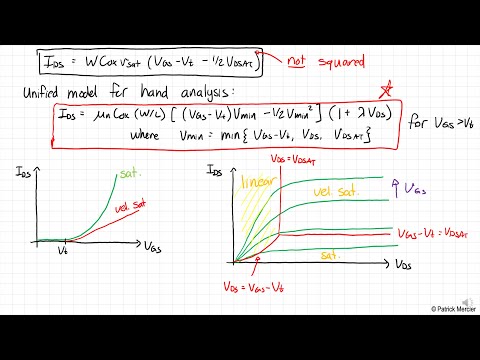 IDS = W Cox vsat (VGS - Vt - 1/2 VDSAT)
not squared
Unified model for hand analysis:
IDS = μn Cox (W/L) [ (VGS - Vt) Vmin - 1/2 Vmin² ] (1 + λ VDS)
where Vmin = min{ VGS - Vt, VDS, VDSAT }
for VGS > Vt
IDS
sat.
vel. sat
Vt
VGS
VDS = VDSAT
IDS
linear
vel. sat.
↑ VGS
VGS - Vt = VDSAT
sat.
VDS
VDS = VGS - Vt
© Patrick Mercier